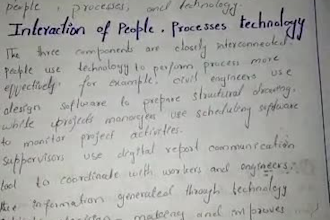 people, processes, and technology.
Interaction of People, Processes technology
The three components are closely interconnected.
people use technology to perform process more
effectively. for example, civil engineers use
design software to prepare structural drawing.
while projects managers use scheduling software
to monitor project activities.
suppervisors use digital report communication
tool to coordinate with workers and engineers.
the information generated through technology
making and improves